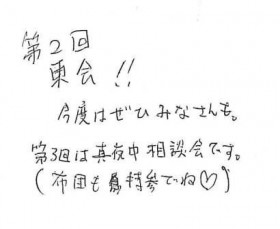 第2回
東会!!
今度はぜひみなさんも。
第3回は真夜中相談会です。
(布団も持参でね♡)